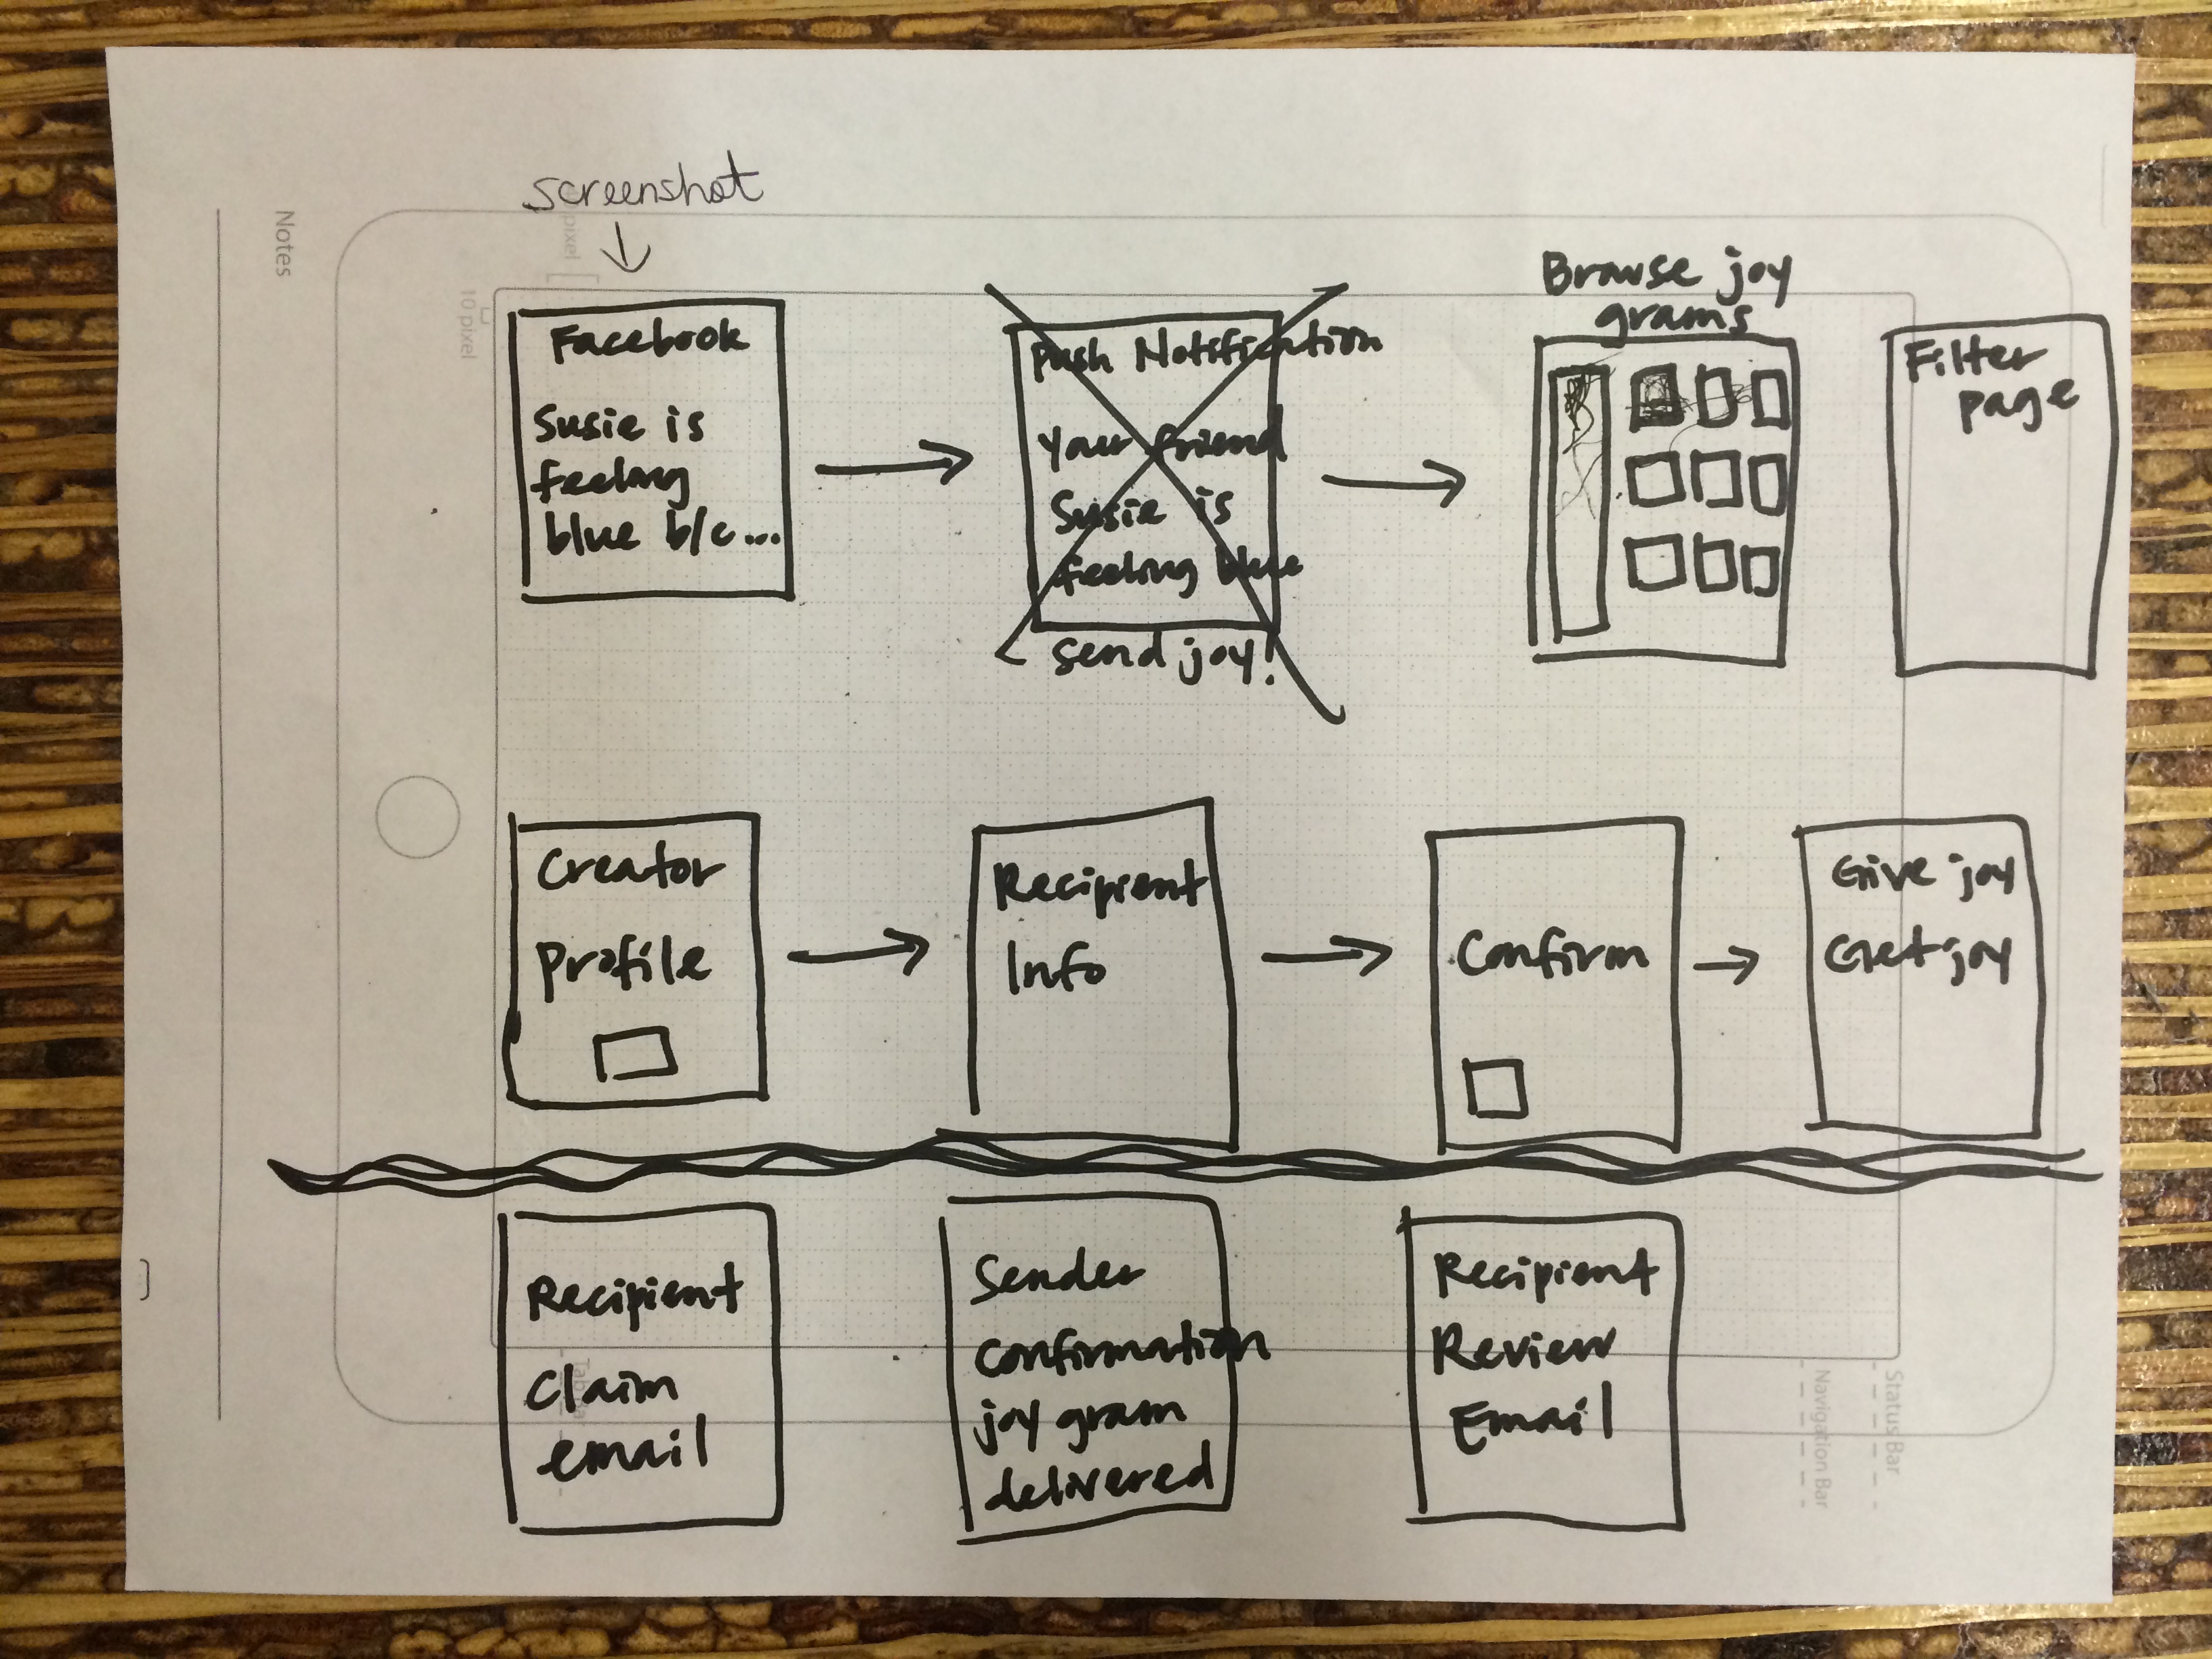 screenshot
Facebook
Susie is
feeling
blue b/c...
Push Notification
Your friend
Susie is
feeling blue
send joy!
Browse joy
grams
Filter
page
Creator
Profile
Recipient
Info
Confirm
Give joy
Get joy
Recipient
Claim
email
Sender
confirmation
joy gram
delivered
Recipient
Review
Email
Notes
10 pixel
pixel
Status Bar
Navigation Bar